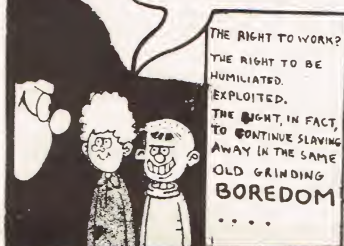 THE RIGHT TO WORK?
THE RIGHT TO BE
HUMILIATED.
EXPLOITED.
THE RIGHT, IN FACT,
TO CONTINUE SLAVING
AWAY IN THE SAME
OLD GRINDING
BOREDOM
....